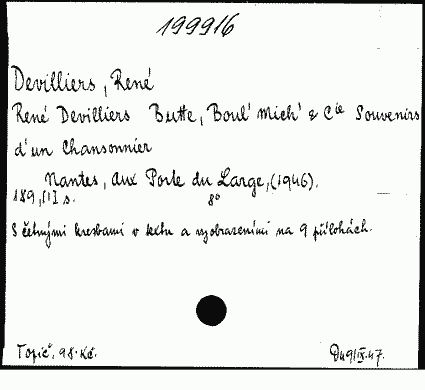 199916
Devilliers, René
René Devilliers Butte, Boul' Mich' & Cie Souvenirs
d'un Chansonnier
Nantes, Aux Porte du Large, (1946).
189, III s. 8°
S četnými kresbami v textu a vyobrazeními na 9 přílohách.
Topič, 98.Kč.